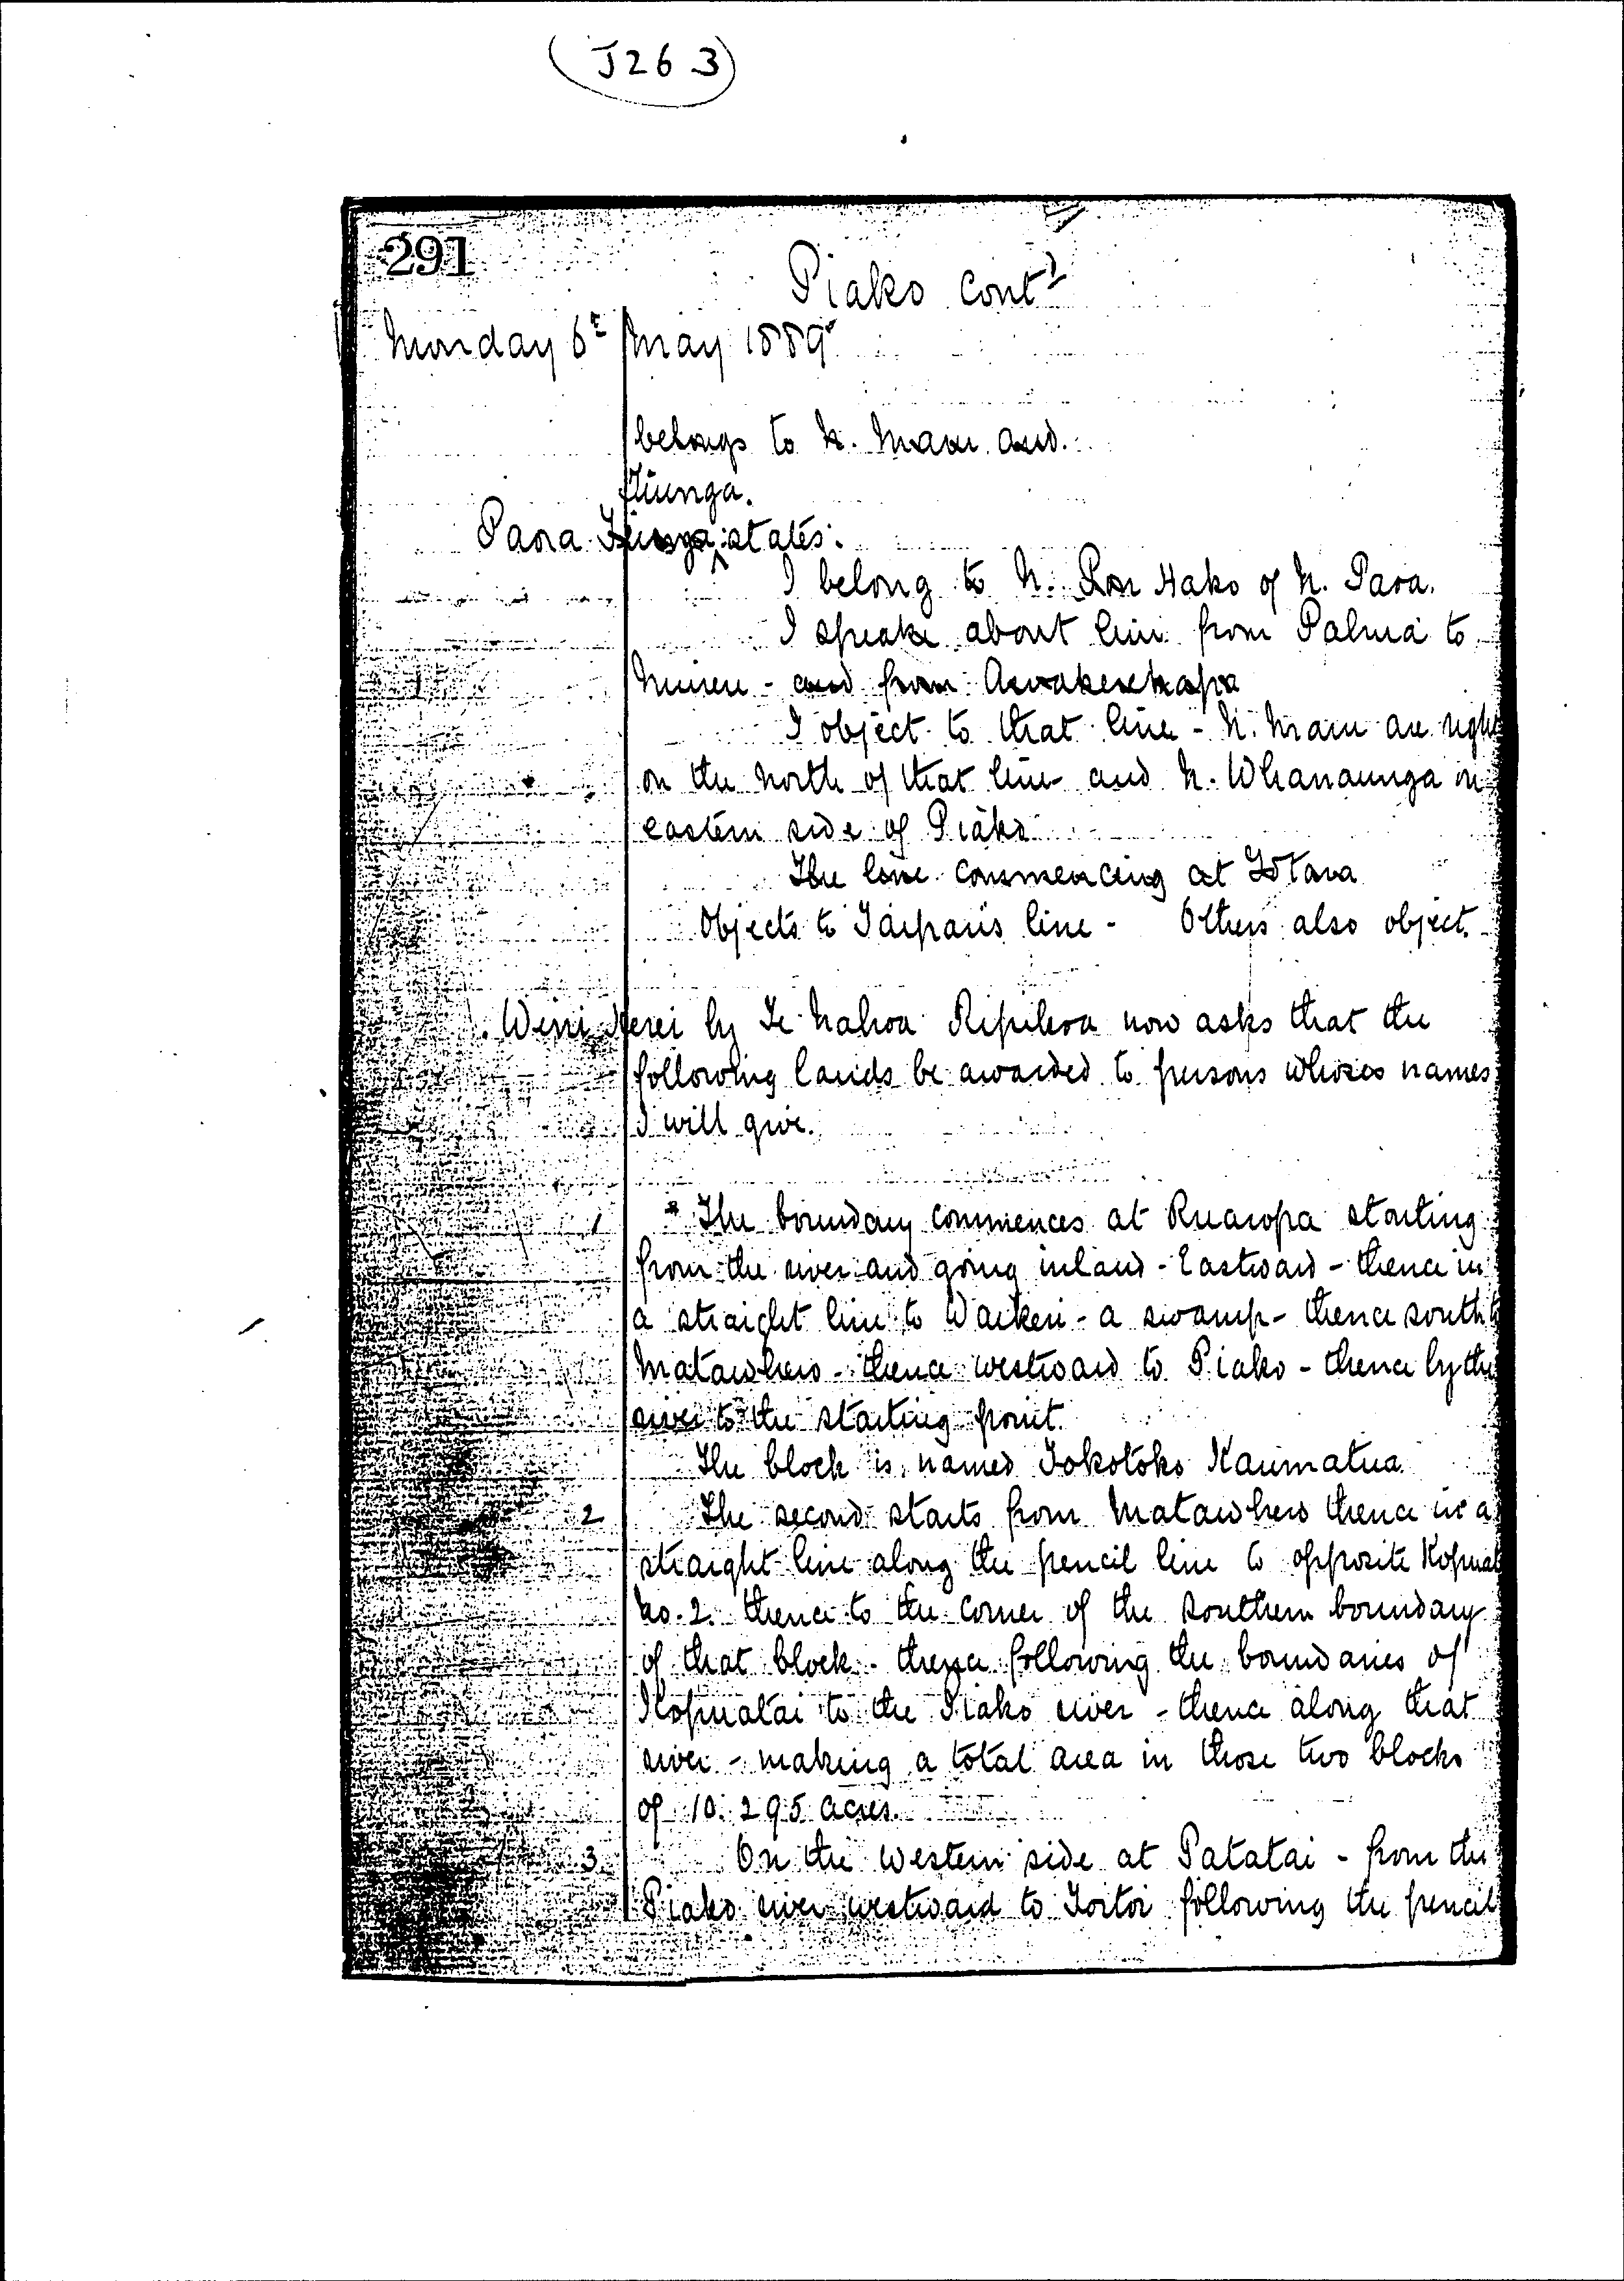 (J263)
291
Piako Contd
Monday 6t May 1889
belongs to N. Maru and.
Tiunga.
Paora states:
I belong to N. Hako of N. Paoa.
I speake about line from Pahua to
and from
I object to that line - N. Maru are right
on the North of that line and N. Whanaunga on
eastern side of Piako
The line commencing at Totara
Objects to Taipari's line - Others also object.
Wini Kerei by Te Nahoa now asks that the
following lands be awarded to persons whoses names
I will give.
1 * The boundary commences at Ruawopa starting
from the river and going inland - Eastward - thence in
a straight line to Waikeri - a swamp - thence south to
Matawhero - thence westward to Piako - thence by the
river to the starting point.
The block is named Tokotoko Kaumatua.
2 The second starts from Matawhero thence in a
straight line along the pencil line to opposite
No. 2. thence to the corner of the southern boundary
of that block - thence following the boundaries of
Kopuatai to the Piako river - thence along that
river - making a total area in those two blocks
of 10.295 acres.
3 On the western side at Patatai - from the
Piako river westward to Toitoi following the pencil